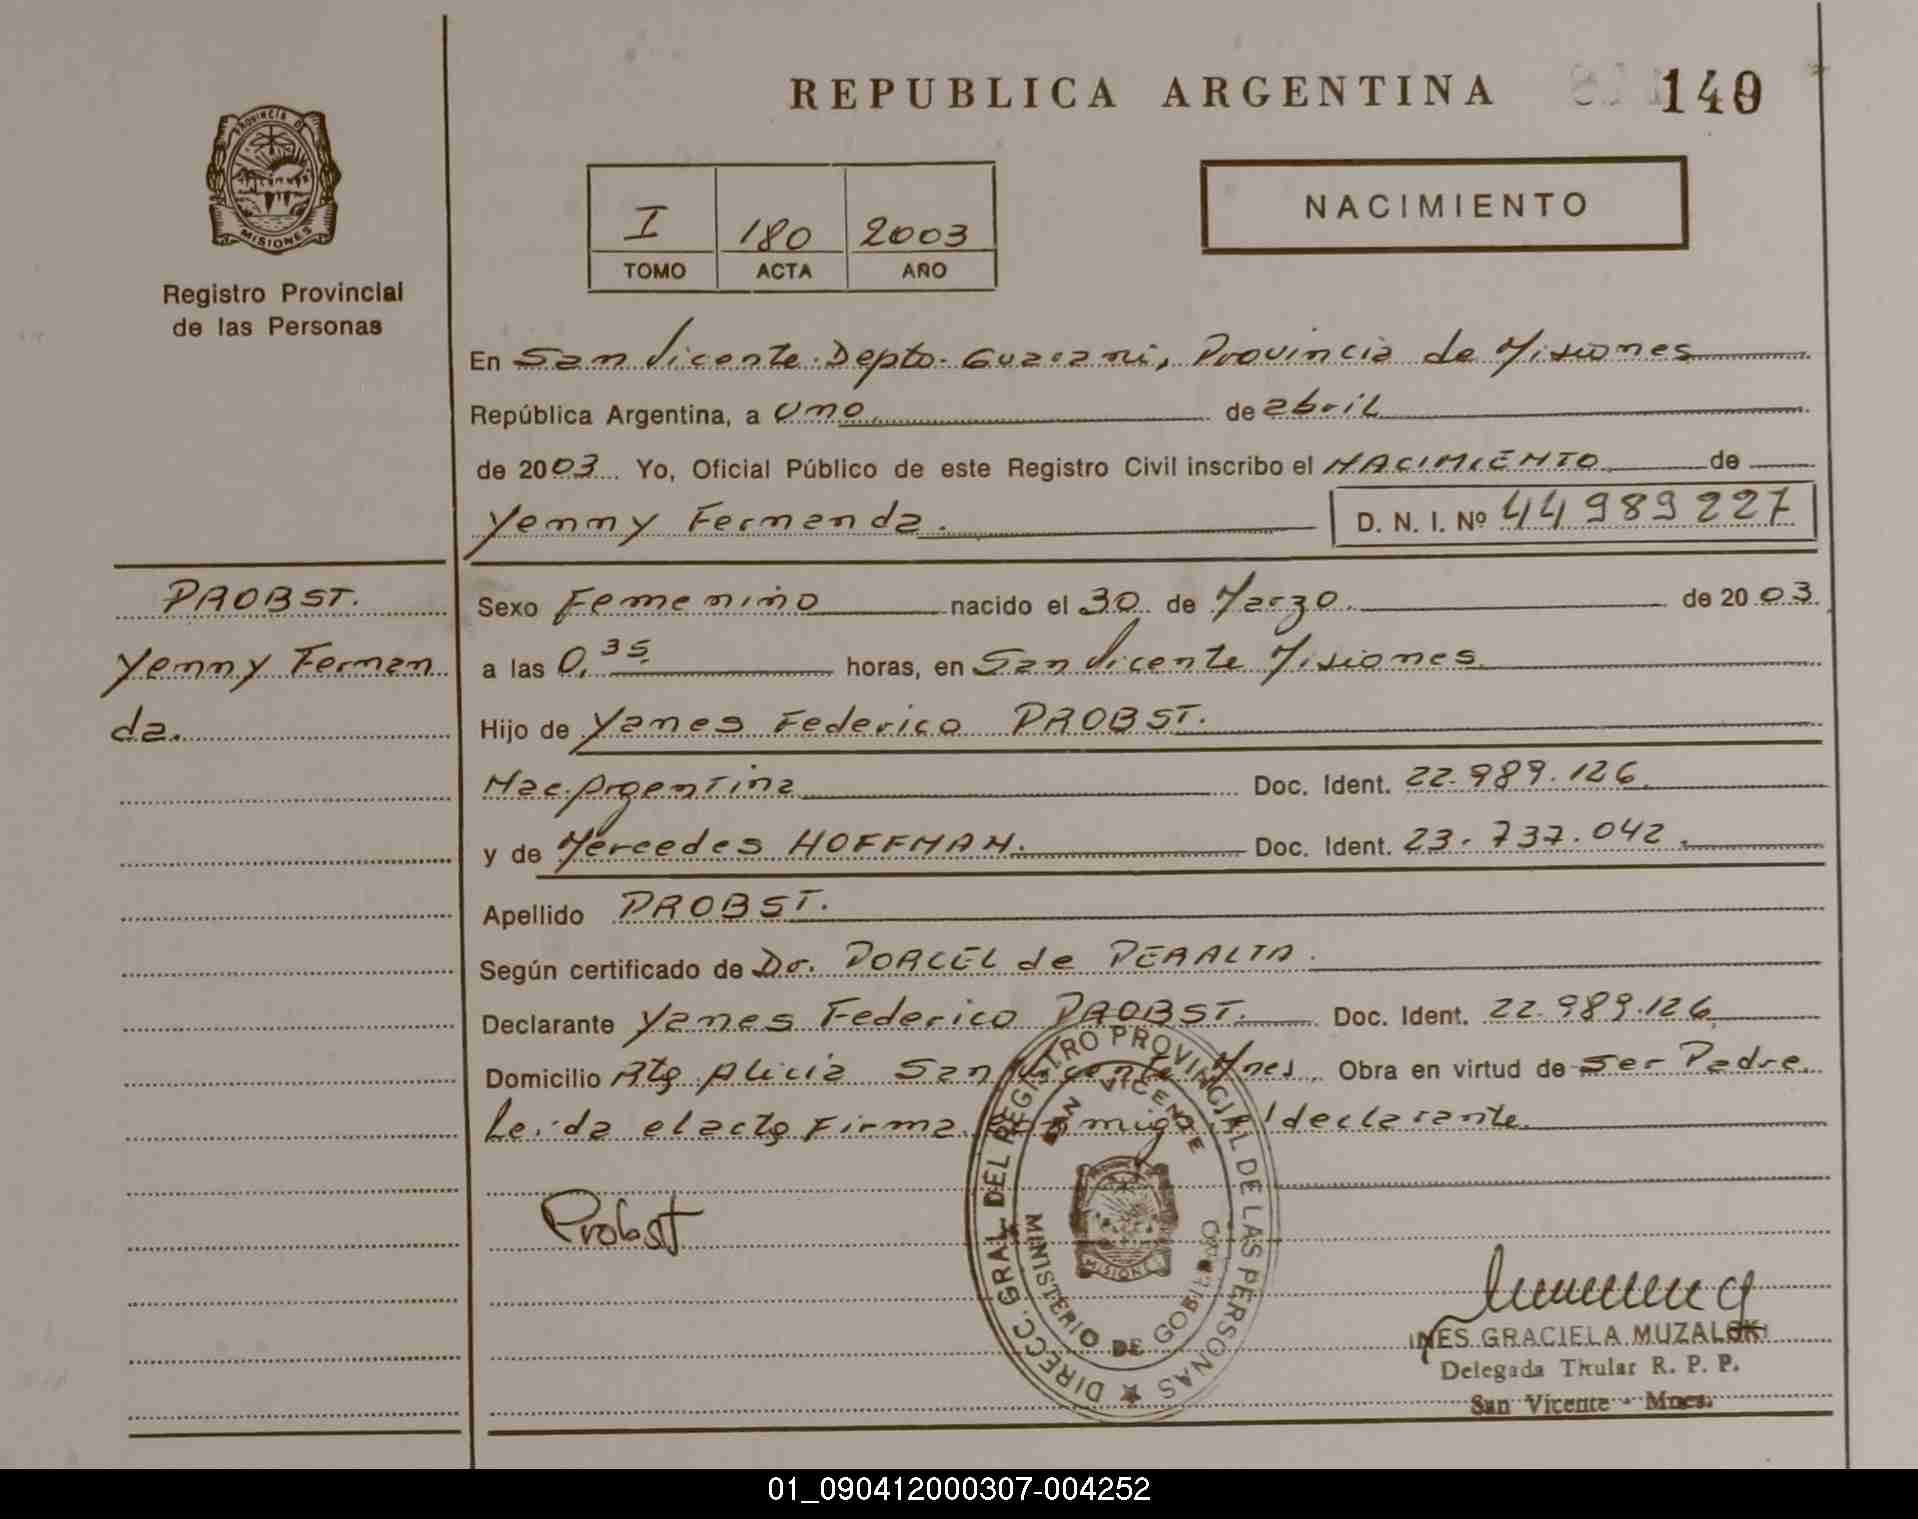 REPUBLICA ARGENTINA
140
PROVINCIA DE
MISIONES
Registro Provincial
de las Personas
I 180 2003
TOMO ACTA AÑO
NACIMIENTO
En San Vicente. Depto. Guarani, Provincia de Misiones
República Argentina, a uno de abril
de 2003 Yo, Oficial Público de este Registro Civil inscribo el NACIMIENTO de
Yenny Fernanda.
D. N. I. Nº 44989227
PROBST.
Yenny Fernan
da.
Sexo Femenino nacido el 30 de Marzo. de 2003.
a las 0,35 horas, en San Vicente Misiones
Hijo de Yanes Federico PROBST.
Nac. Argentina Doc. Ident. 22.989.126
y de Mercedes HOFFMAN. Doc. Ident. 23.737.042.
Apellido PROBST.
Según certificado de Dr. DORCEL de PERALTA.
Declarante Yanes Federico PROBST. Doc. Ident. 22.989.126
Domicilio Pto Alicia San Vicente Mnes. Obra en virtud de ser Padre.
Leida el acta firma conmigo el declarante.
DIRECC. GRAL. DEL REGISTRO PROVINCIAL DE LAS PERSONAS
SAN VICENTE
MISIONES
MINISTERIO DE GOBIERNO
Probst
INES GRACIELA MUZALSKI
Delegada Titular R. P. P.
San Vicente - Mnes.
01_090412000307-004252